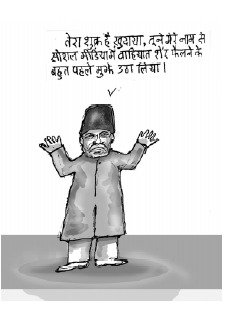 तेरा शुक्र है ख़ुदाया, तूने मेरे नाम से
सोशल मीडिया में वाहियात शेर फैलने के
बहुत पहले मुझे उठा लिया।